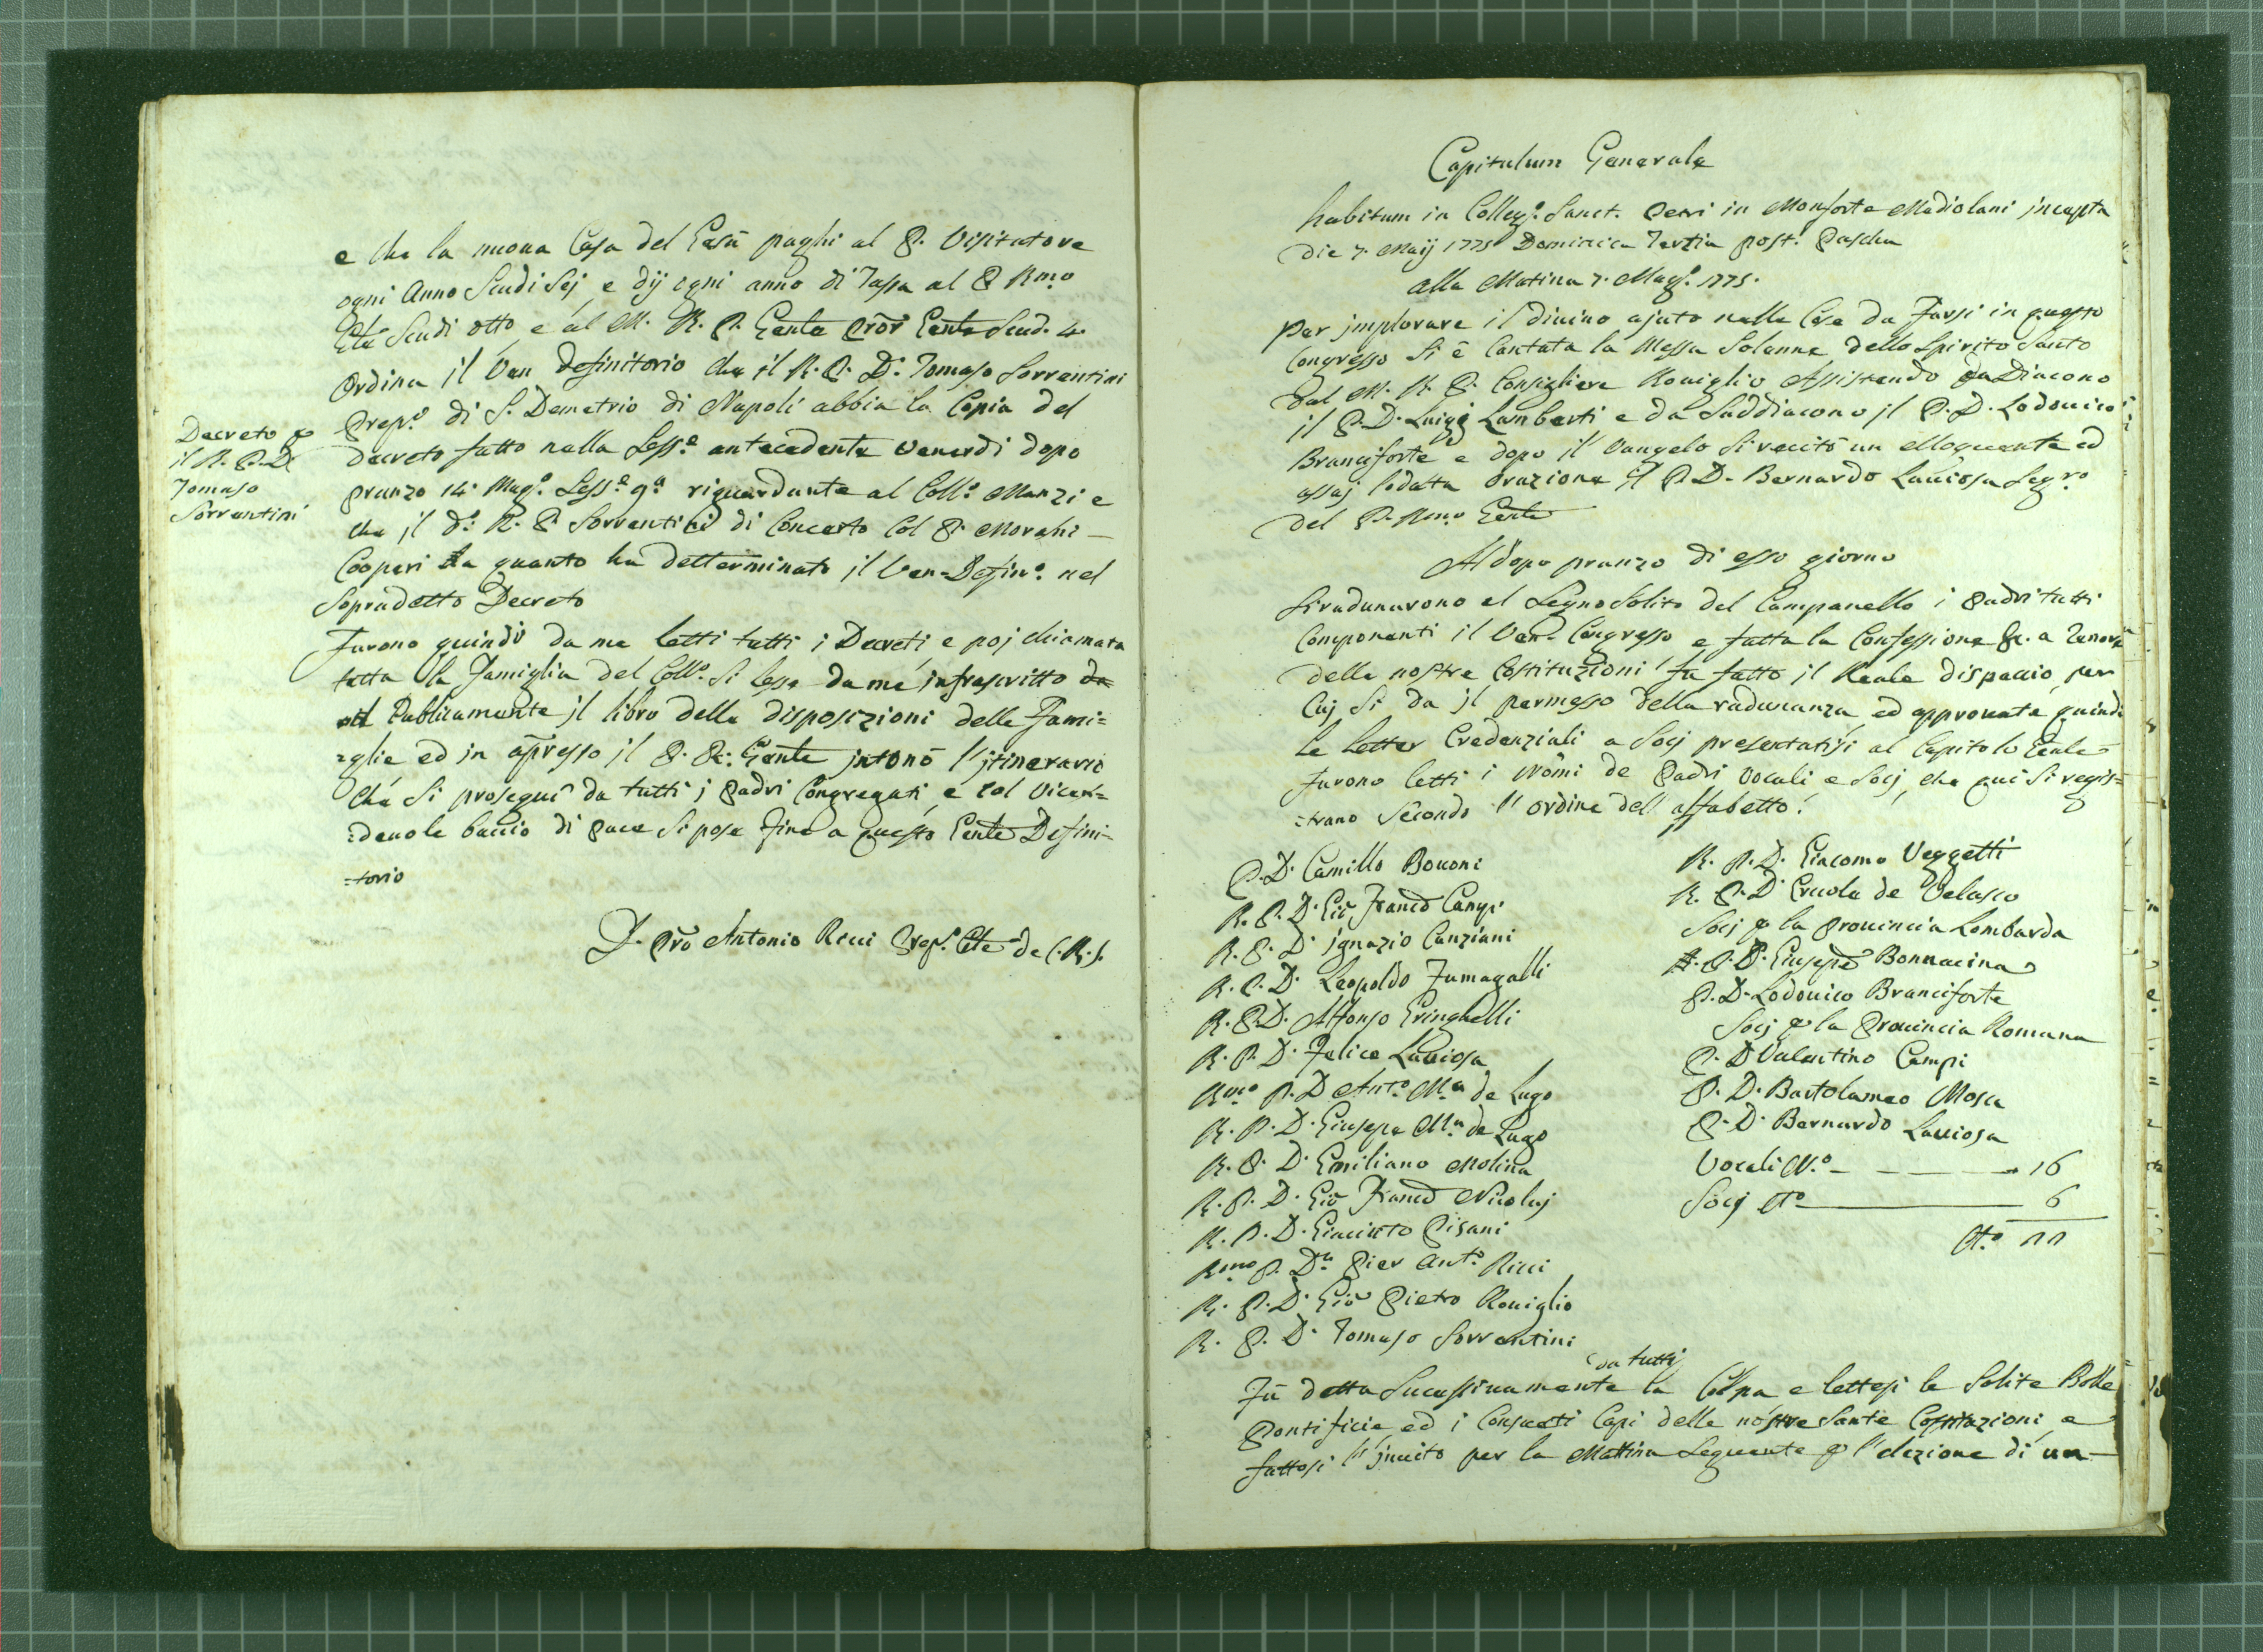 e che la nuova Casa del Gesù paghi al P. Visitatore
ogni Anno Scudi Sej e dij ogni anno di Tassa al P Rmo
Gle Scudi otto, e al M. R. P. Scud. 4
Ordina il Ven Definitorio che il R. P. D. Tomaso Sorrentini
Prepo di S. Demetrio di Napoli abbia la Copia del
Decreto fatto nella Sesse antecedente Venerdi dopo
pranzo 14 Mago Sesse 9a riguardante al Collo Manzi e
che il do R. P. Sorrentini di Concerto Col P. Moraghi
Cooperi a quanto ha detterminato il Ven. Defino nel
Sopradetto Decreto
Decreto p
il R. P. D
Tomaso
Sorrentini
Furono quindi da me letti tutti i Decreti e poj chiamata
tutta la Famiglia del Collo Si lesse da me infrascritto
Publicamente il libro delle disposizioni delle Fami=
=glie ed in apresso il P. Gente intonò l'itinerario
Che Si proseguì da tutti i Padri Congregati e col vicen=
=devole baccio di pace Si pose Fine a questo Gente Defini=
=torio
D. Pro Antonio Ricci Prepo de C. R. S.
Capitulum Generale
habitum in Collego Sanct. Petri in Monforte Mediolani incepta
Die 7 Maij 1775 Dominica Tertia post. Pascha
Alla Matina 7 Mago 1775.
Per implorare il divino ajuto nelle Cose da Farsi in questo
Congresso Si è Cantata la Messa Solenne dello Spirito Santo
dal M. R. P. Consigliere Roviglio Assistendo da Diacono
il P. D. Luigi Lamberti e da Suddiacono il P. D. Lodovico
Branciforte e dopo il Vangelo Si recitò un elloquente ed
assaj lodatta Orazione il P. D. Bernardo Laviosa Segro
del P. Rmo Gente
Al dopo pranzo di esso giorno
Si radunarono al Segno Solito del Campanello i Padri tutti
Componenti il Ven. Congresso e fatta la Confessione &. a Tenore
delle nostre Costituzioni fu fatto il Reale dispaccio, per
Cuj Si da il permesso della radunanza ed approvate quindi
le Letter Credenziali a Socj presentatisi al Capitolo Genle
Furono letti i Nomi de Padri Vocali e Socj, che qui Si regis=
=trano Secondo l'ordine dell'alfabetto.
P. D. Camillo Bovoni
R. P. D. Gio Franco Cangi
R. P. D. Ignazio Canziani
R. P. D. Leopoldo Fumagalli
R. P. D. Alfonso Gringhelli
R. P. D. Felice Laviosa
Rmo P. D Anto Ma de Lugo
R. P. D. Giusepe Ma de Lugo
R. P. D. Emiliano Molina
R. P. D. Gio Franco Nicolaj
R. P. D. Giacinto Pisani
Rmo P. Dn Pier Anto Ricci
R. P. D. Gio Pietro Roviglio
R. P. D. Tomaso Sorrentini
R. P. D. Giacomo Veggetti
R. P. D. Ercole de Velasco
Socj p la Provincia Lombarda
P. D. Giusepe Bonnacina
P. D. Lodovico Branciforte
Socj p la Provincia Romana
P. D Valentino Campi
P. D. Bartolameo Mosca
P. D. Bernardo Laviosa
Vocali No 16
Socj No 6
No 22
da tutti
Fù detta Sucessivamente la Colpa e lettesi le Solite Bolle
Pontificie ed i Consueti Capi delle nostre Sante Costituzioni e
fattosi l'invito per la Mattina Seguente p l'elezione di un